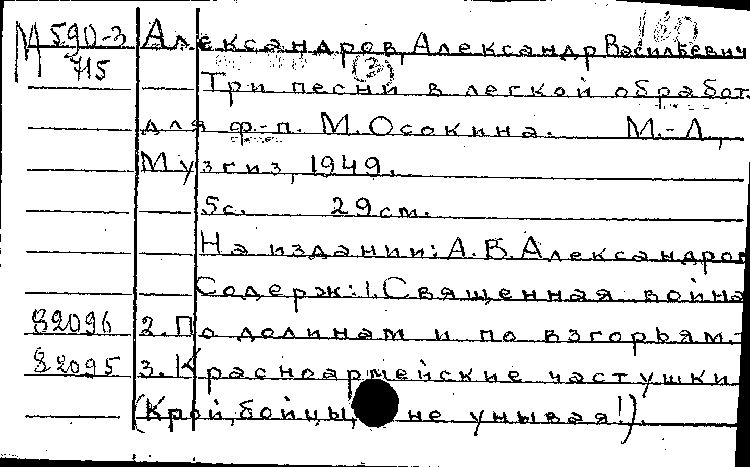 160
М 590-3 Александров, Александр Васильевич
715 (3)
Три песни в легкой обработ.
для ф-п. М. Осокина. М.-Л.,
Музгиз, 1949.
5с. 29см.
На издании: А.В.Александров
Содерж: 1. Священная война
82096 2. По долинам и по взгорьям.-
82095 3. Красноармейские частушки
(Крой, бойцы, не унывая!).